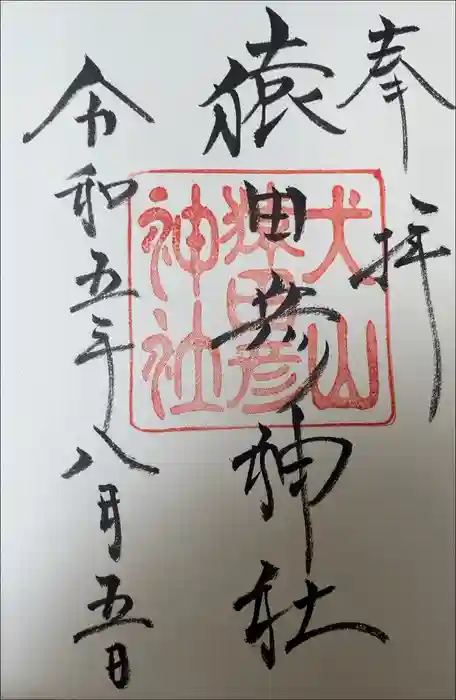 奉拝
猿田彦神社
犬山
猿田彦
神社
令和五年八月五日